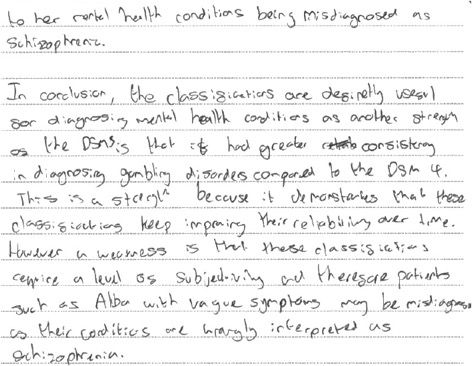 to her mental health conditions being misdiagnosed as
schizophrenic.
In conclusion, the classifications are definetly useful
for diagnosing mental health conditions as another strength
of the DSM5 is that it had greater consistency
in diagnosing gambling disorders compared to the DSM 4.
This is a strength because it demonstartes that these
classifications keep improving their reliability over time.
However a weakness is that these classifications
require a level of subjectivity and therefore patients
such as Alba with vague symptoms may be misdiagnosed
as their conditions are wrongly interpreted as
schizophrenia.